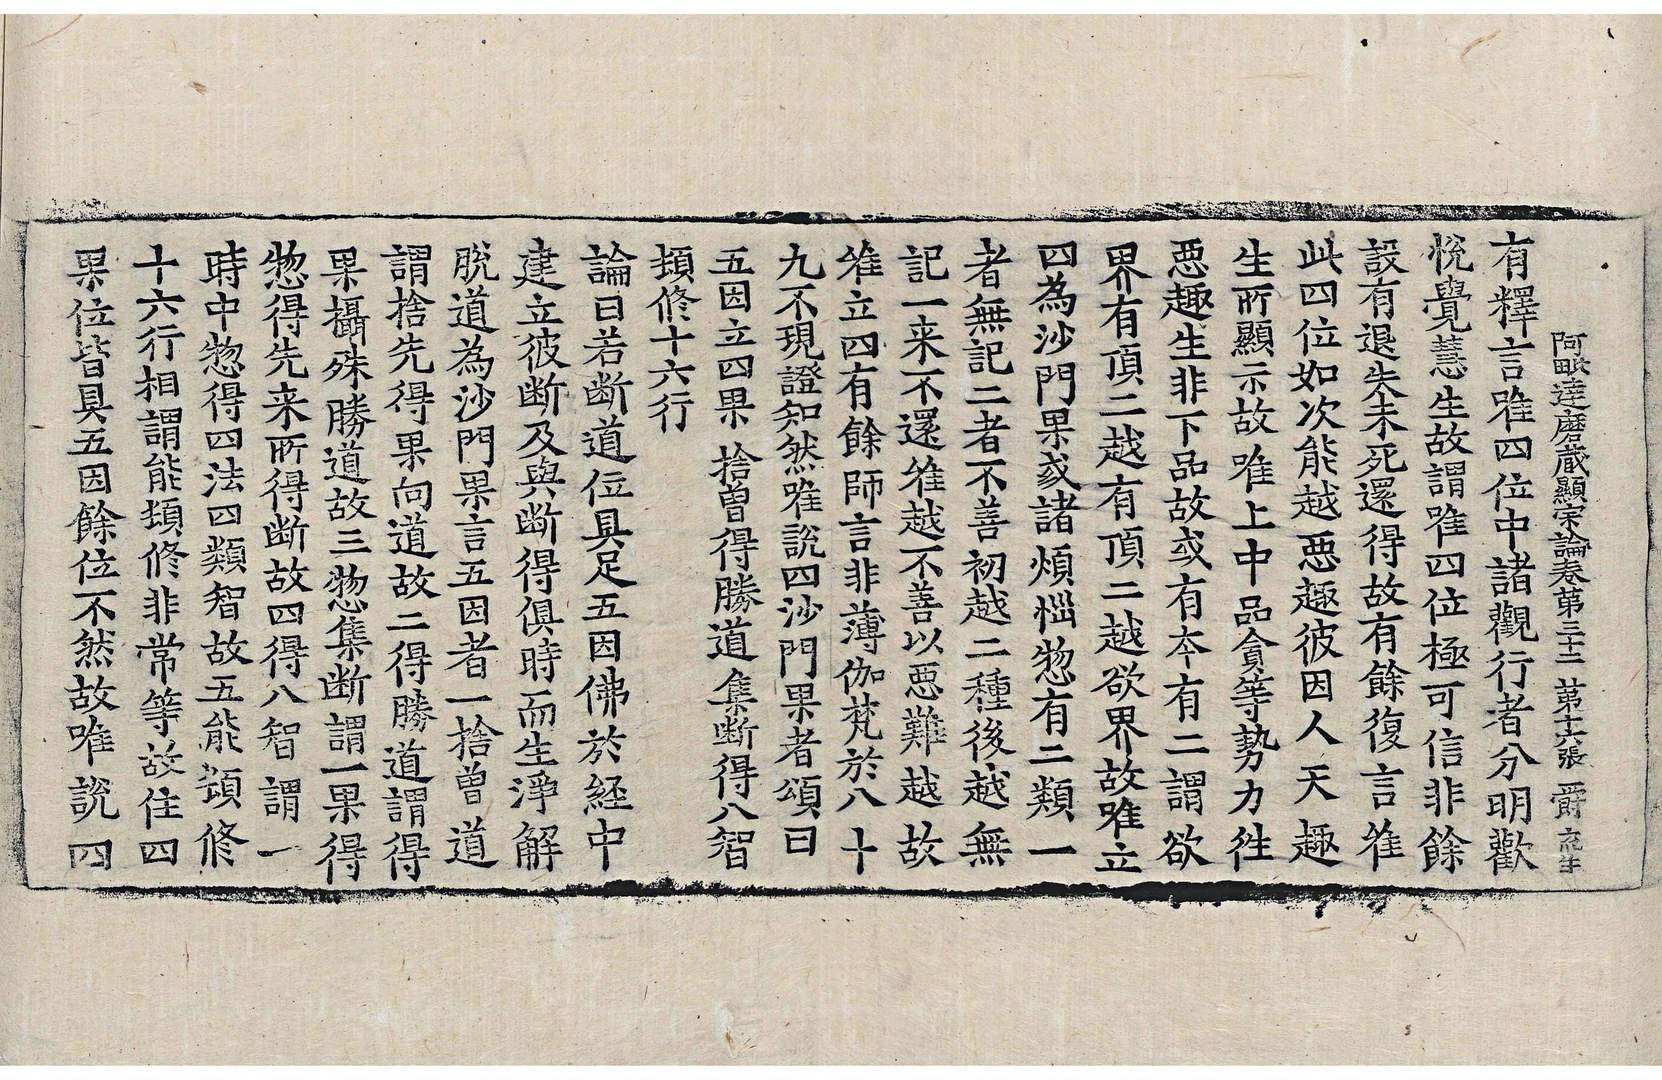 阿毗達磨蔵顯宗論卷第三十二 第十六張 爵
有釋言唯四位中諸觀行者分明歡
悅覺慧生故謂唯四位極可信非餘
設有退失未死還得故有餘復言雖
此四位如次能越惡趣彼因人天趣
生所顯示故唯上中品貪等勢力往
惡趣生非下品故或有本有二謂欲
界有頂二越有頂二越欲界故唯立
四為沙門果或諸煩惱惣有二類一
者無記二者不善初越二種後越無
記一来不還雖越不善以惡難越故
雖立四有餘師言非薄伽梵於八十
九不現證知然唯說四沙門果者頌曰
五因立四果 捨曽得勝道 集斷得八智
頓修十六行
論曰若斷道位具足五因佛於経中
建立彼斷及與斷得俱時而生淨解
脫道為沙門果言五因者一捨曽道
謂捨先得果向道故二得勝道謂得
果攝殊勝道故三惣集斷謂一果得
惣得先来所得斷故四得八智謂一
時中惣得四法四類智故五能頓修
十六行相謂能頓修非常等故住四
果位皆具五因餘位不然故唯說四